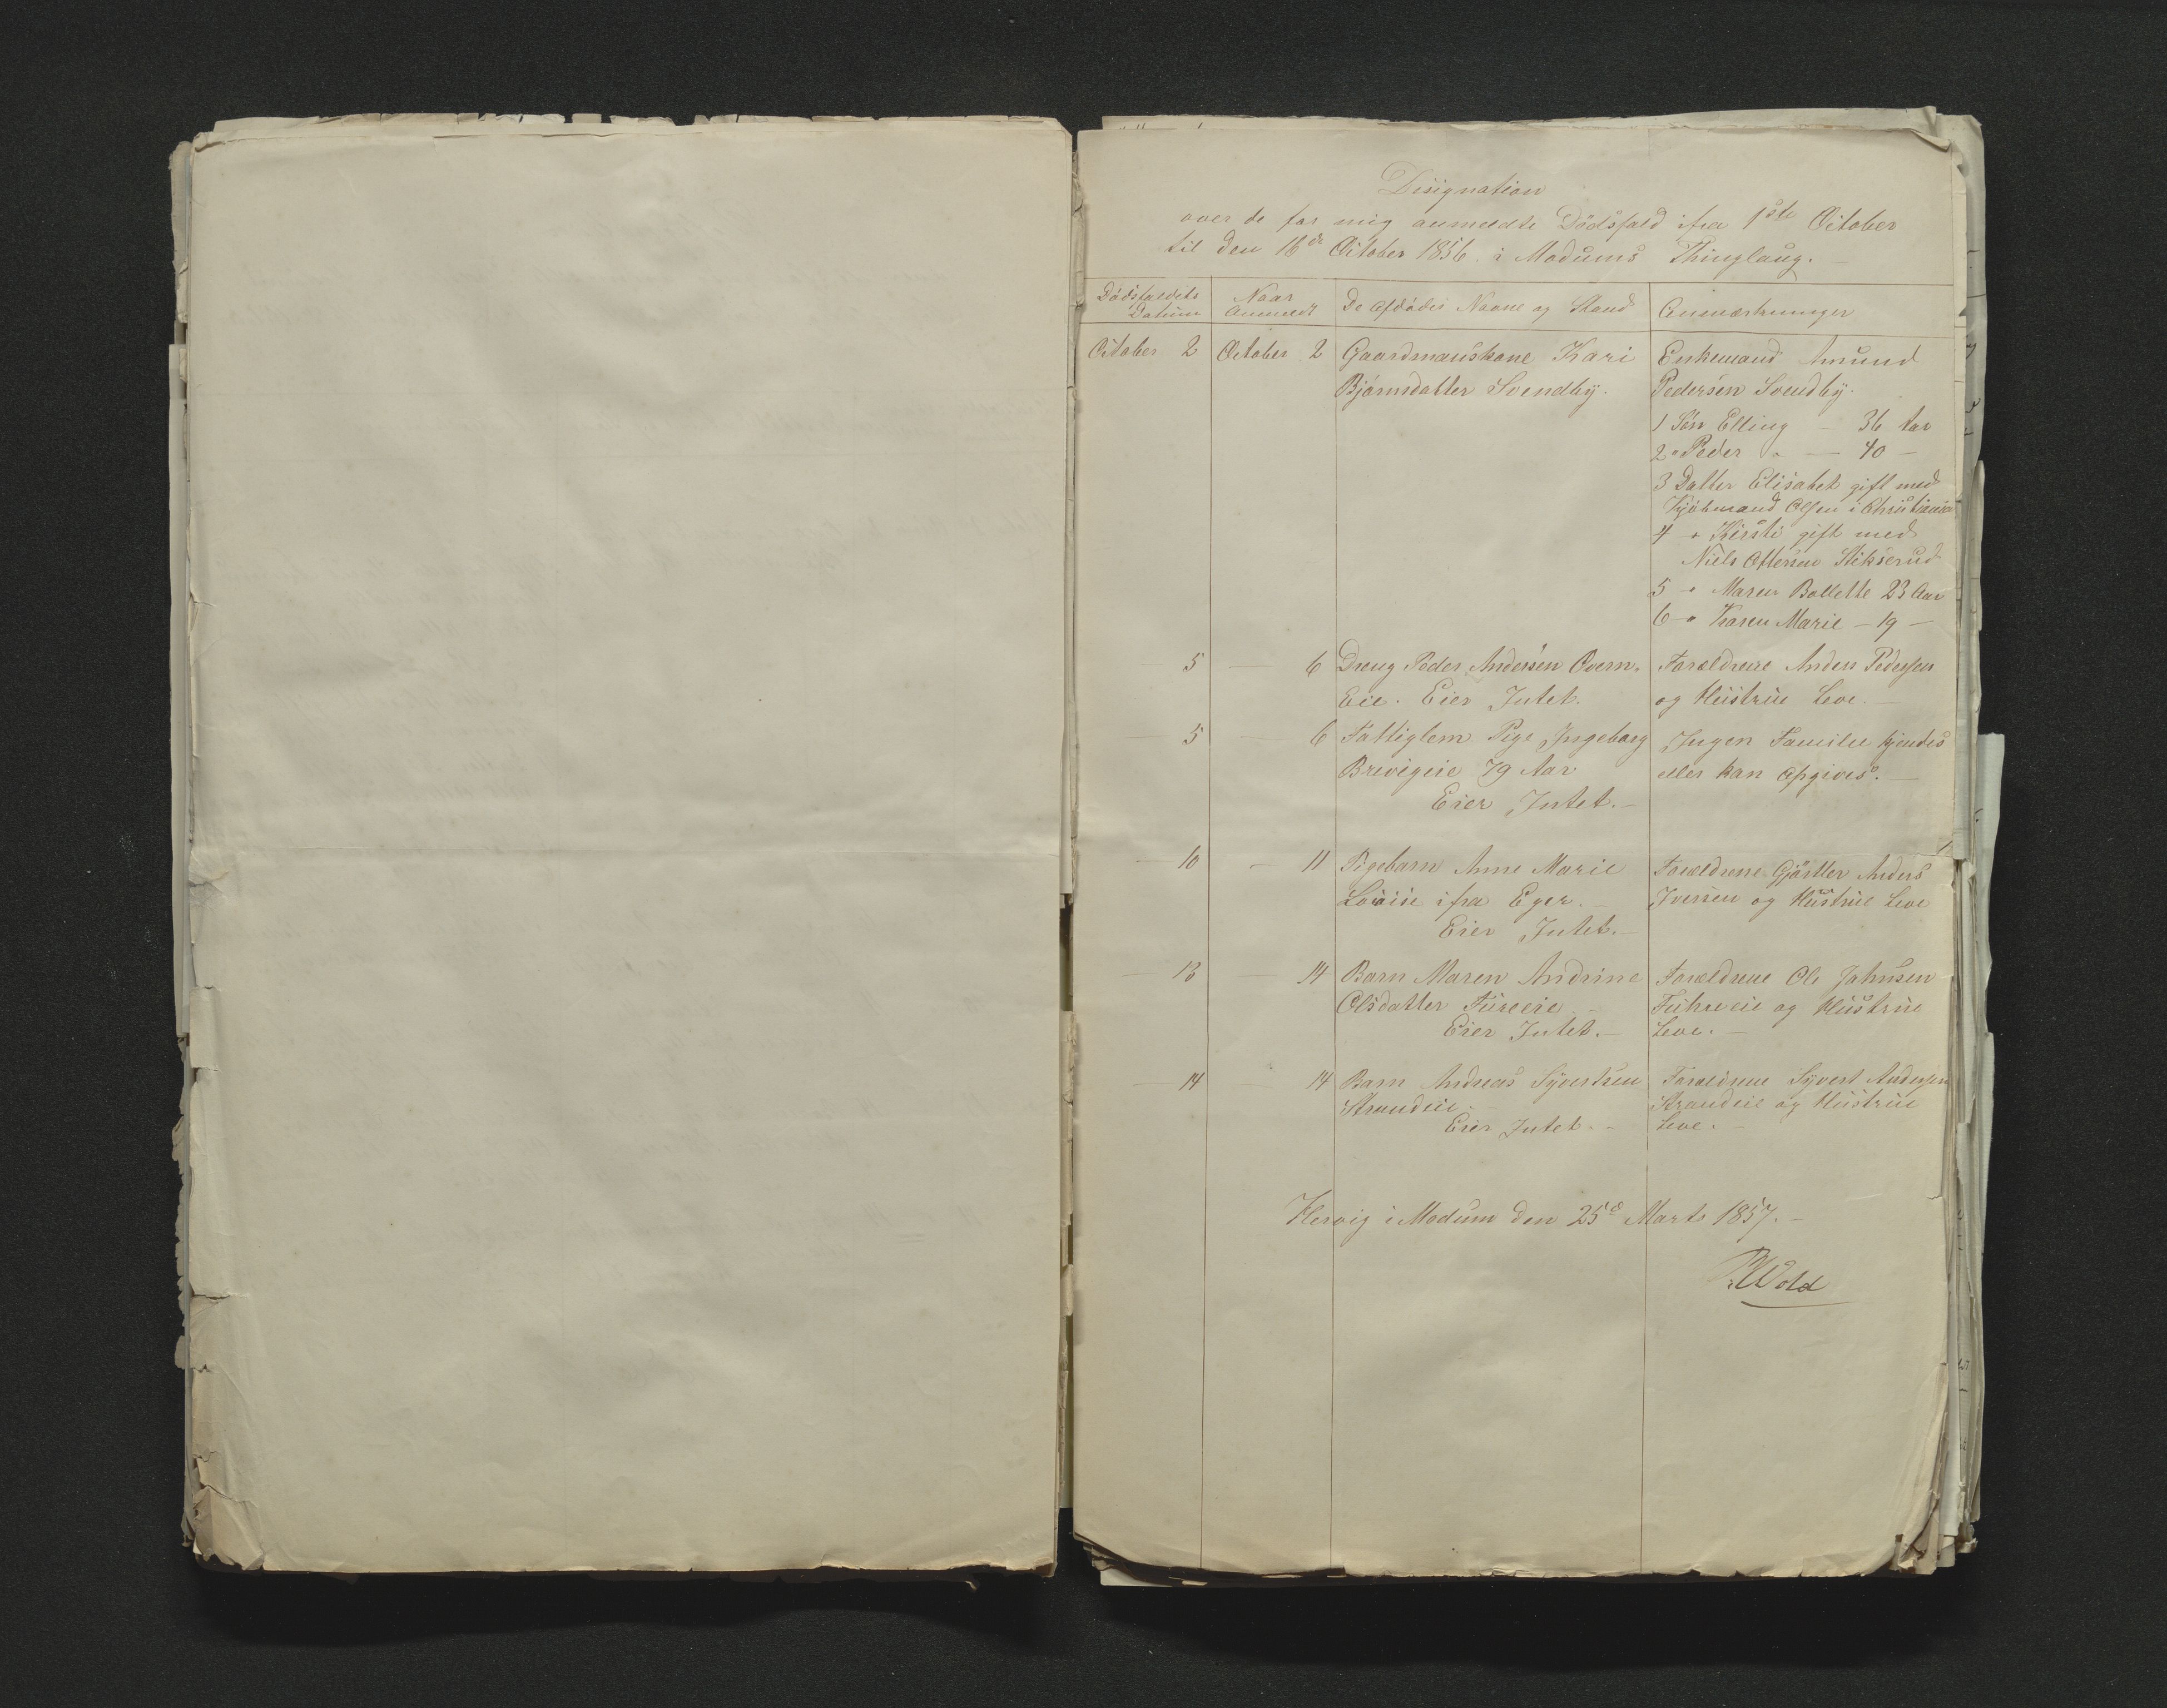 Disignation
over de for mig anmeldte Dödsfald ifra 1ste October
til den 16de October 1856 i Modums Thinglaug.
Dödsfaldets Datum | Naar Anmeldt | De Afdödes Navne og Stand | Anmærkninger
October 2 | October 2 | Gaardmanskone Kari | Enkemand Amund
Bjørnsdatter Svendby. | Pedersen Svendby.
1 Søn Elling — 36 Aar
2 " Peder " — 40 —
3 Datter Elisabet gift med
Kjöbmand Olsen i Christiania
4 " Kirsti gift med
Niels Ottersen Stikserud
5 - " Maren Bollette 23 Aar
6 - " Karen Marie — 19 —
— 5 | — 6 | Dreng Peder Andersen Overn- | Forældrene Anders Pedersen
Eie. Eier Intet. | og Hustrue Leve. —
— 5 | — 6 | Fattiglem Pige Ingeborg | Ingen Familie kjendes
Brevigeie 79 Aar | eller kan Opgives. —
Eier Intet. —
— 10 | — 11 | Pigebarn Anne Marie | Forældrene Gjörtler Anders
Lovise ifra Eger. — | Iversen og Hustrue Leve
Eier Intet. —
— 13 | — 14 | Barn Maren Andrine | Forældrene Ole Johnsen
Olsdatter Fureeie | Fuhreeie og Hustrue
Eier Intet. — | Leve. —
— 14 | — 14 | Barn Andreas Syvertsen | Forældrene Syvert Andersen
Strandeie. | Strandeie og Hustrue
Eier Intet. — | Leve. —
Hervig i Modum den 25de Marts 1857. —
Wold